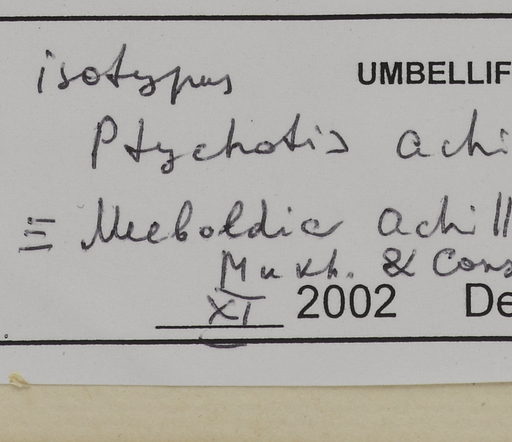 isotypus UMBELLIF
Ptychotis achi
≡ Meeboldia achill
Mukh. & Cons
XI 2002 De